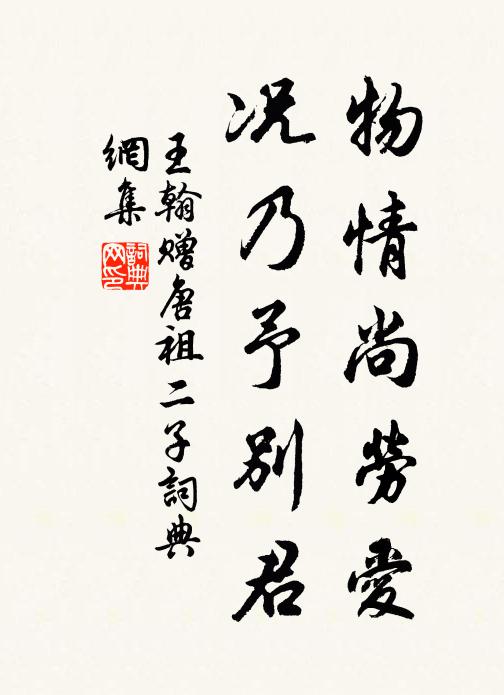 物情尚劳愛
况乃予别君
王翰赠唐祖二子詞典
網集
詞典
网印